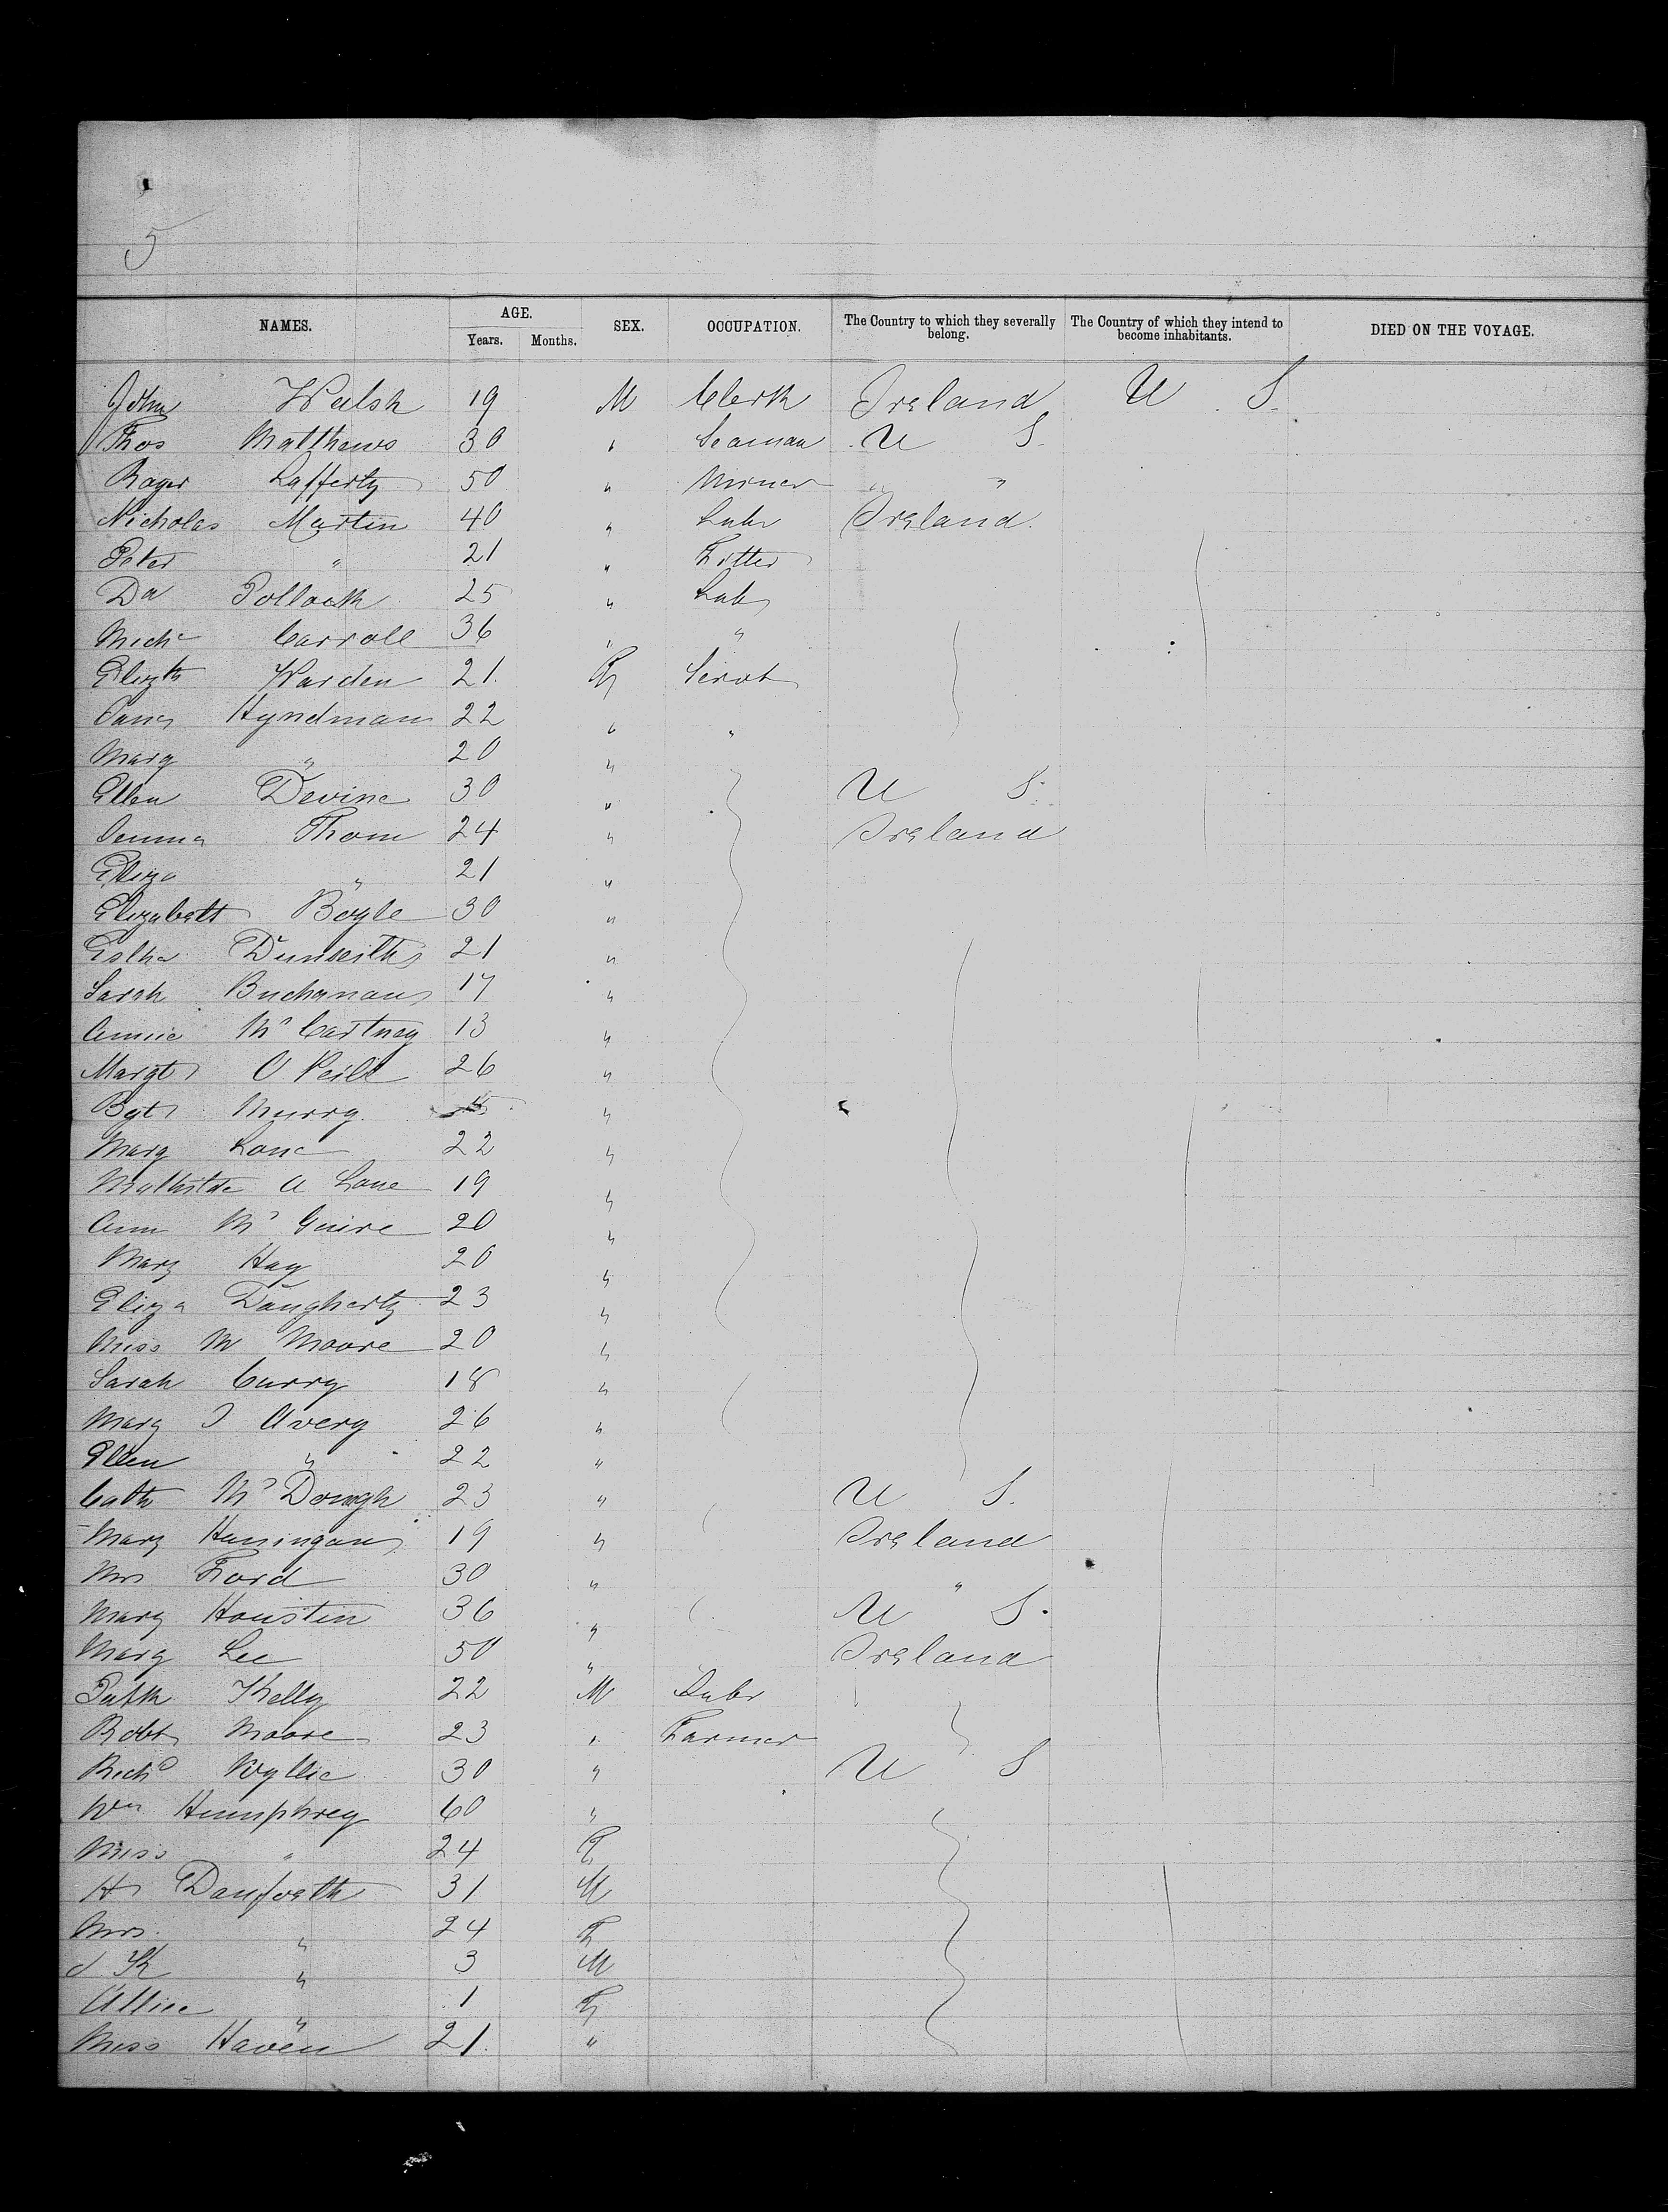 5
NAMES. AGE. SEX. OCCUPATION. The Country to which they severally belong. The Country of which they intend to become inhabitants. DIED ON THE VOYAGE.
Years. Months.
John Walsh 19 M Clerk Ireland U S.
Thos Matthews 30 " Seaman U S.
Roger Lafferty 50 " Miner " "
Nicholas Martin 40 " Labr Ireland.
Peter " 21 " Fitter
Da Pollock 25 " Lab
Michl Carroll 36 " "
Elizth Warden 21. F Servt
Hyndman 22 " "
Mary " 20 "
Ellen Devine 30 " U S.
Jemima Thom 24 " Ireland
Eliza " 21 "
Elizabeth Boyle 30 "
Dunseith 21 "
Sarah Buchanan 17 "
Annie Mc Cartney 13 "
Margt O Neill 26 "
Bgt Murry "
Mary Lane 22 "
Mathilda A Lane 19 "
Ann Mc Guire 20 "
Mary Hay 20 "
Eliza Daugherty 23 "
Miss M Moore 20 "
Sarah Curry 18 "
Mary J Avery 26 "
Ellen " 22 "
Cath Mc Donogh 23 " U S.
Mary Hannigan 19 " Ireland
Mrs Ford 30 " "
Mary Houstin 36 " U S.
Mary Lee 50 " Ireland
Patk Kelly 22 M Labr
Robt Moore 23 " Farmer
Richd Wyllie 30 " U S
Wm Humphrey 60 "
Miss " 24 F
H Danforth 31 M
Mrs. " 24 F
J K " 3 M
Allice " 1 F
Miss Haven 21. "